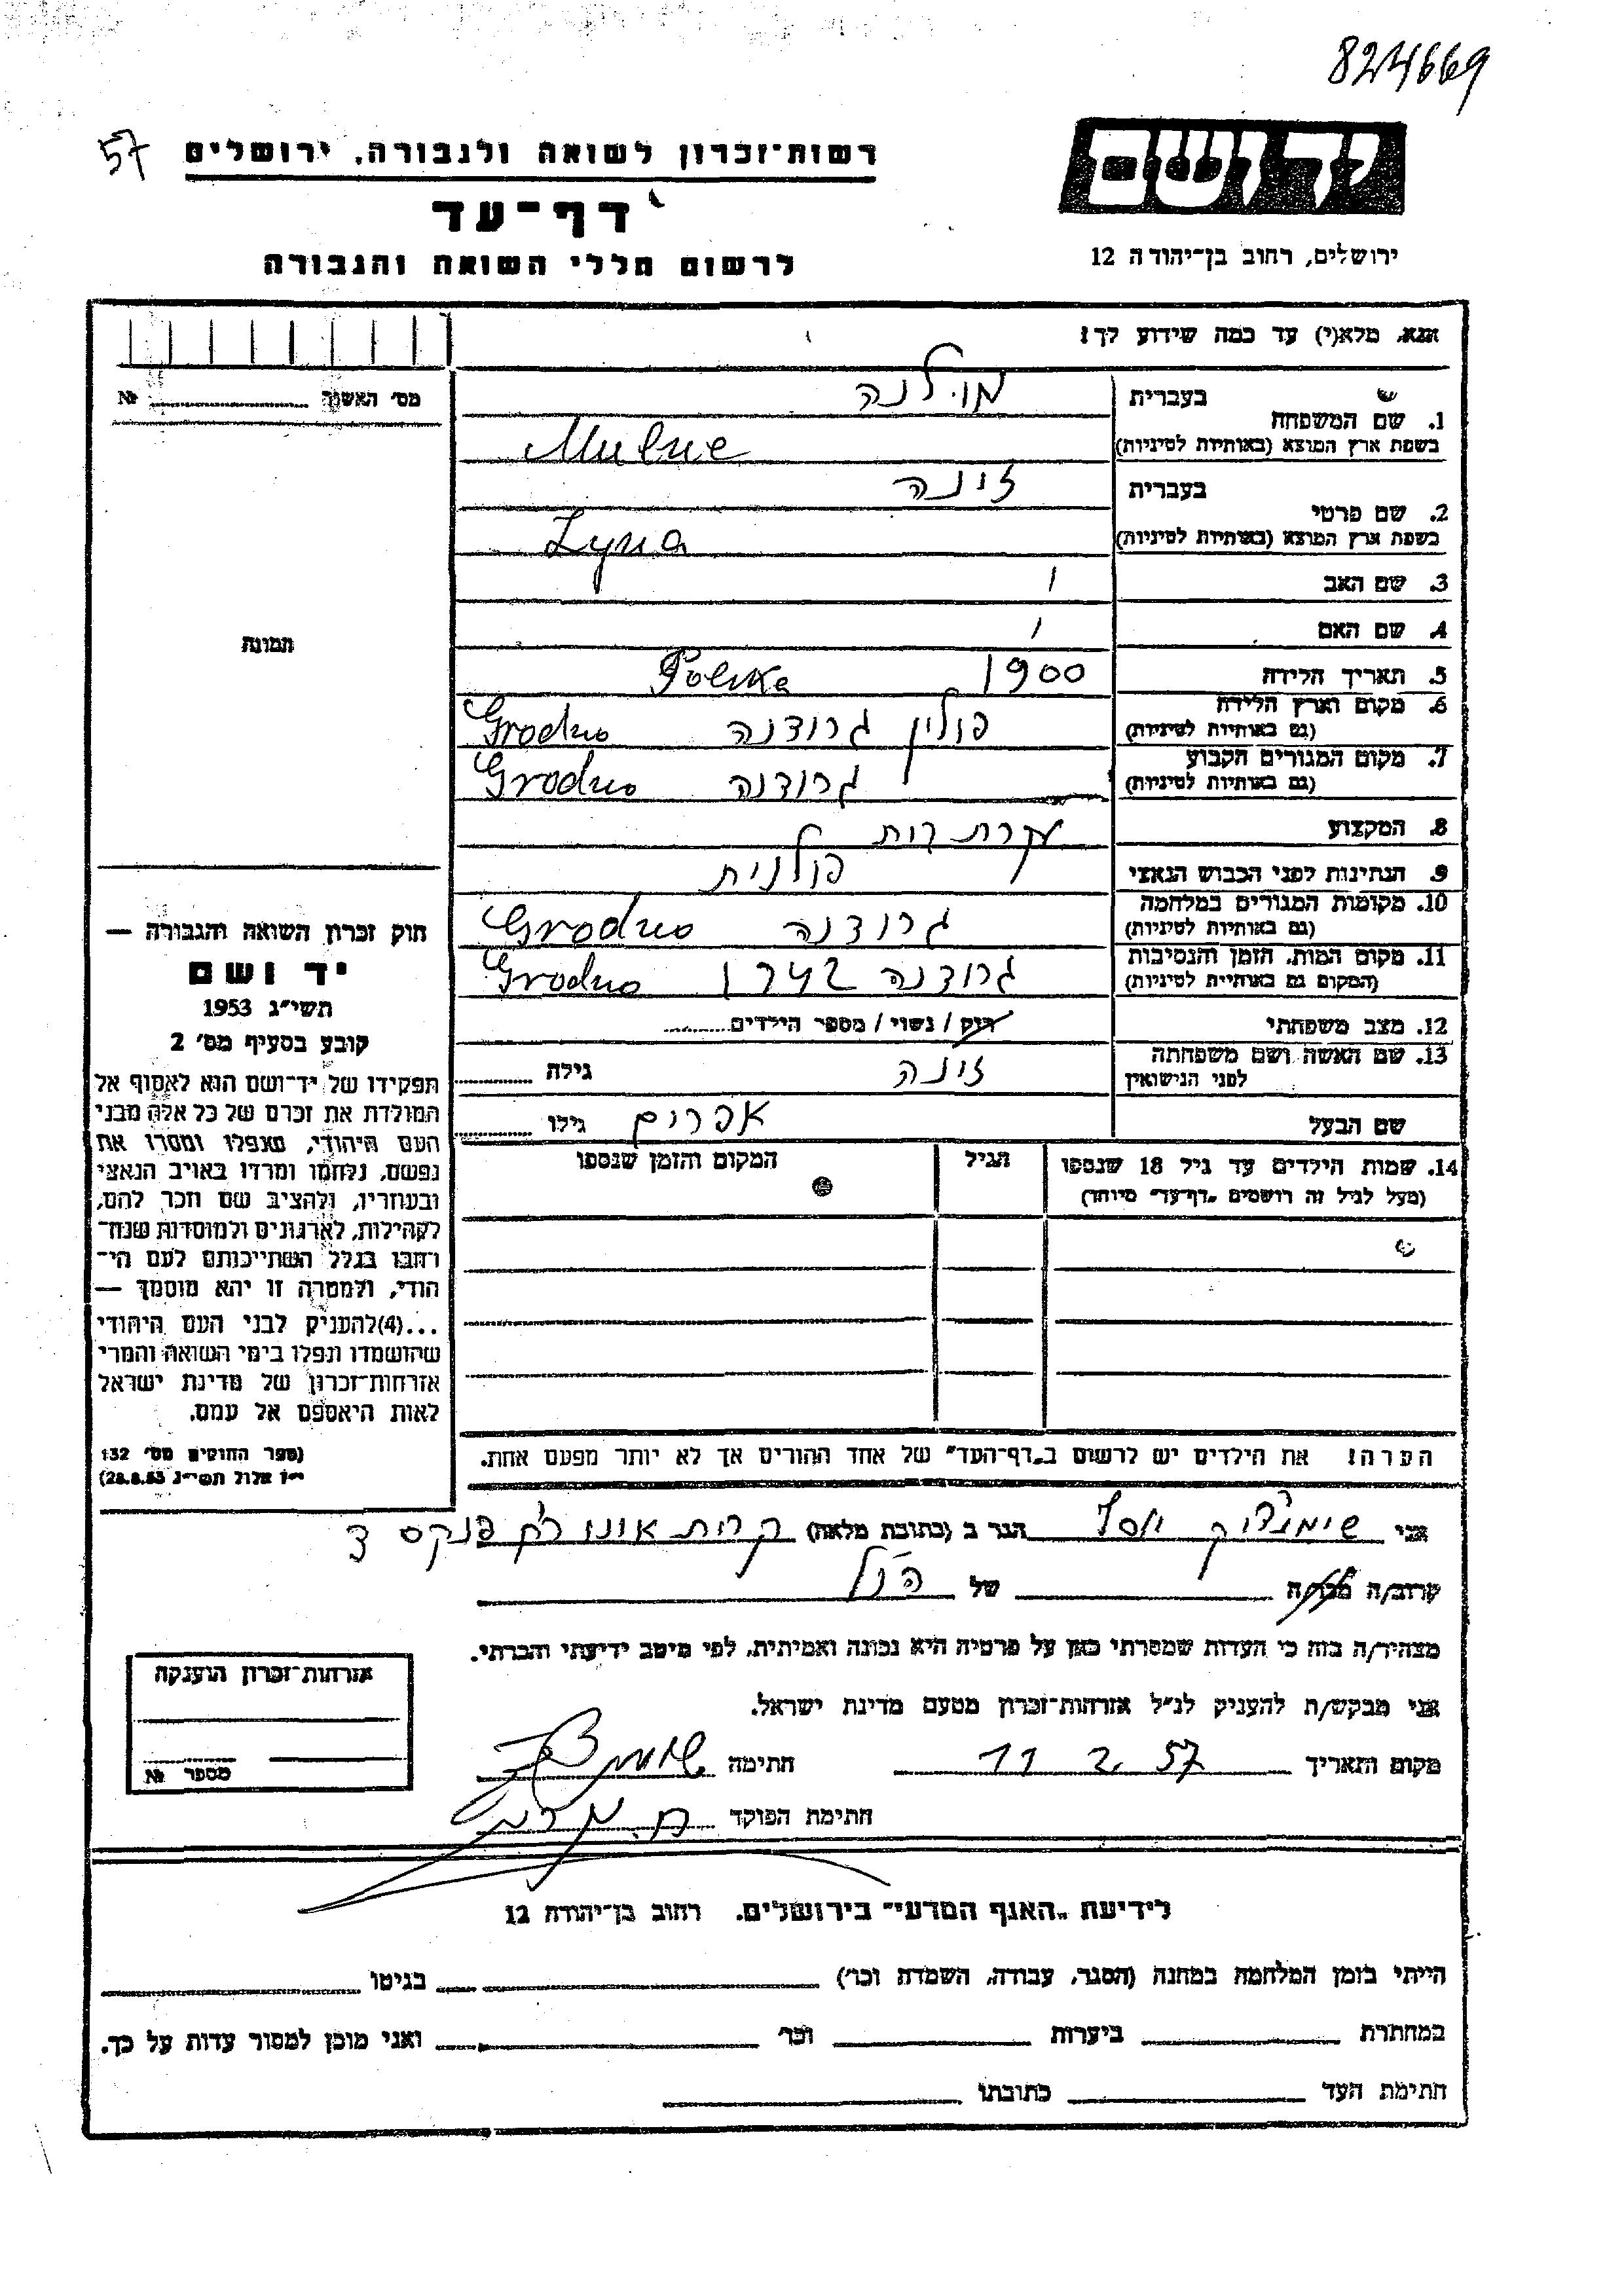 824669
57
רשות־זכרון לשואה ולגבורה, ירושלים
ידושם
דף־עד
ירושלים, רחוב בן־יהודה 12
לרשום חללי השואה והגבורה
אנא, מלא(י) עד כמה שידוע לך!
מס' האשור № 
בעברית מוילנה
1. שם המשפחה
בשפת ארץ המוצא (באותיות לטיניות) Mulne
בעברית זינה
2. שם פרטי
בשפת ארץ המוצא (באותיות לטיניות) Zyna
3. שם האב /
4. שם האם /
תמונה
5. תאריך הלידה 1900 Polska
6. מקום וארץ הלידה
(גם באותיות לטיניות) פולין גרודנה Grodno
7. מקום המגורים הקבוע
(גם באותיות לטיניות) גרודנה Grodno
8. המקצוע עקרת בית
9. הנתינות לפני הכבוש הנאצי פולנית
10. מקומות המגורים במלחמה
(גם באותיות לטיניות) גרודנה Grodno
11. מקום המות, הזמן והנסיבות
(המקום גם באותיות לטיניות) גרודנה 1942 Grodno
12. מצב משפחתי רווק / נשוי / מספר הילדים
13. שם האשה ושם משפחתה
לפני הנישואין זינה גילה
שם הבעל אפרים גילו
14. שמות הילדים עד גיל 18 שנספו
(מעל לגיל זה רושמים "דף־עד" מיוחד)
הגיל
המקום והזמן שנספו
חוק זכרון השואה והגבורה —
יד ושם
תשי"ג 1953
קובע בסעיף מס' 2
תפקידו של יד־ושם הוא לאסוף אל
המולדת את זכרם של כל אלה מבני
העם היהודי, שנפלו ומסרו את
נפשם, נלחמו ומרדו באויב הנאצי
ובעוזריו, ולהציב שם וזכר להם,
לקהילות, לארגונים ולמוסדות שנח־
רבו בגלל השתייכותם לעם הי־
הודי, ולמטרה זו יהא מוסמך —
...(4)להעניק לבני העם היהודי
שהושמדו ונפלו בימי השואה והמרי
אזרחות־זכרון של מדינת ישראל
לאות היאספם אל עמם.
(ספר החוקים מס' 132
י"ז אלול תשי"ג 28.8.53)
הערה! את הילדים יש לרשום ב"דף־העד" של אחד ההורים אך לא יותר מפעם אחת.
אני יוסף הגר ב (כתובת מלאה) קרית אונו פנקס ד
קרוב/ה מכר/ה של הנ"ל
מצהיר/ה בזה כי העדות שמסרתי כאן על פרטיה היא נכונה ואמיתית, לפי מיטב ידיעתי והכרתי.
אני מבקש/ת להעניק לנ"ל אזרחות־זכרון מטעם מדינת ישראל.
מקום ותאריך 11 2. 57 חתימה
חתימת הפוקד
אזרחות־זכרון הוענקה
מספר №
לידיעת "האגף המדעי" בירושלים, רחוב בן־יהודה 12
הייתי בזמן המלחמה במחנה (הסגר, עבודה, השמדה וכו') בגיטו
במחתרת ביערות וכו' ואני מוכן למסור עדות על כך.
חתימת העד כתובתו